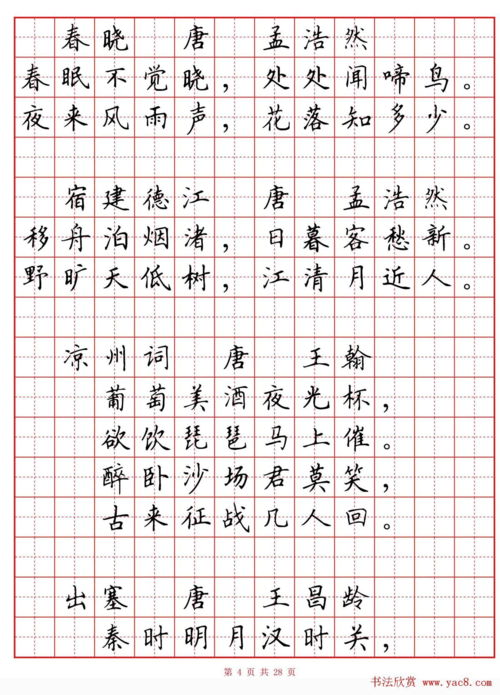 春晓 唐 孟浩然
春眠不觉晓，处处闻啼鸟。
夜来风雨声，花落知多少。
宿建德江 唐 孟浩然
移舟泊烟渚，日暮客愁新。
野旷天低树，江清月近人。
凉州词 唐 王翰
葡萄美酒夜光杯，
欲饮琵琶马上催。
醉卧沙场君莫笑，
古来征战几人回。
出塞 唐 王昌龄
秦时明月汉时关，
第 4 页 共 28 页
书法欣赏 www.yac8.com